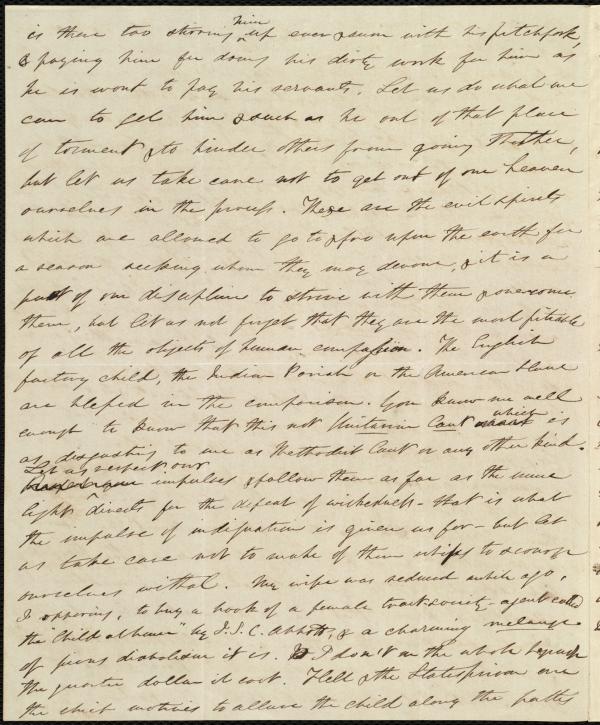 him
is there too stirring up ever & anon with his pitchfork,
& paying him for doing his dirty work for him as
he is wont to pay his servants. Let us do what we
can to get him & such as he out of that place
of torment & to hinder others from going thither,
but let us take care not to get out of our heaven
ourselves in the process. These are the evil spirits
which are allowed to go to & fro upon the earth for
a season seeking whom they may devour, & it is a
part of our discipline to strive with them & overcome
them, but let us not forget that they are the most pitiable
of all the objects of human compassion. The English
factory child, the Indian Pariah or the American slave
are blessed in the comparison. You know me well
enough to know that this not Unitarian Cant which is
as disgusting to me as Methodist Cant or any other kind.
Let us respect our
impulses & follow them as far as the inner
light directs for the defeat of wickedness - that is what
the impulse of indignation is given us for - but let
us take care not to make of them whips to scourge
ourselves withal. My wife was seduced awhile ago,
I opposing, to buy a book of a female tract society agent called
the "Child at home" by J. S. C. Abbott, & a charming melange
of pious diabolism it is. I don't on the whole begrudge
the quarter dollar it cost. Hell & the States prison are
the chief motives to allure the child along the paths